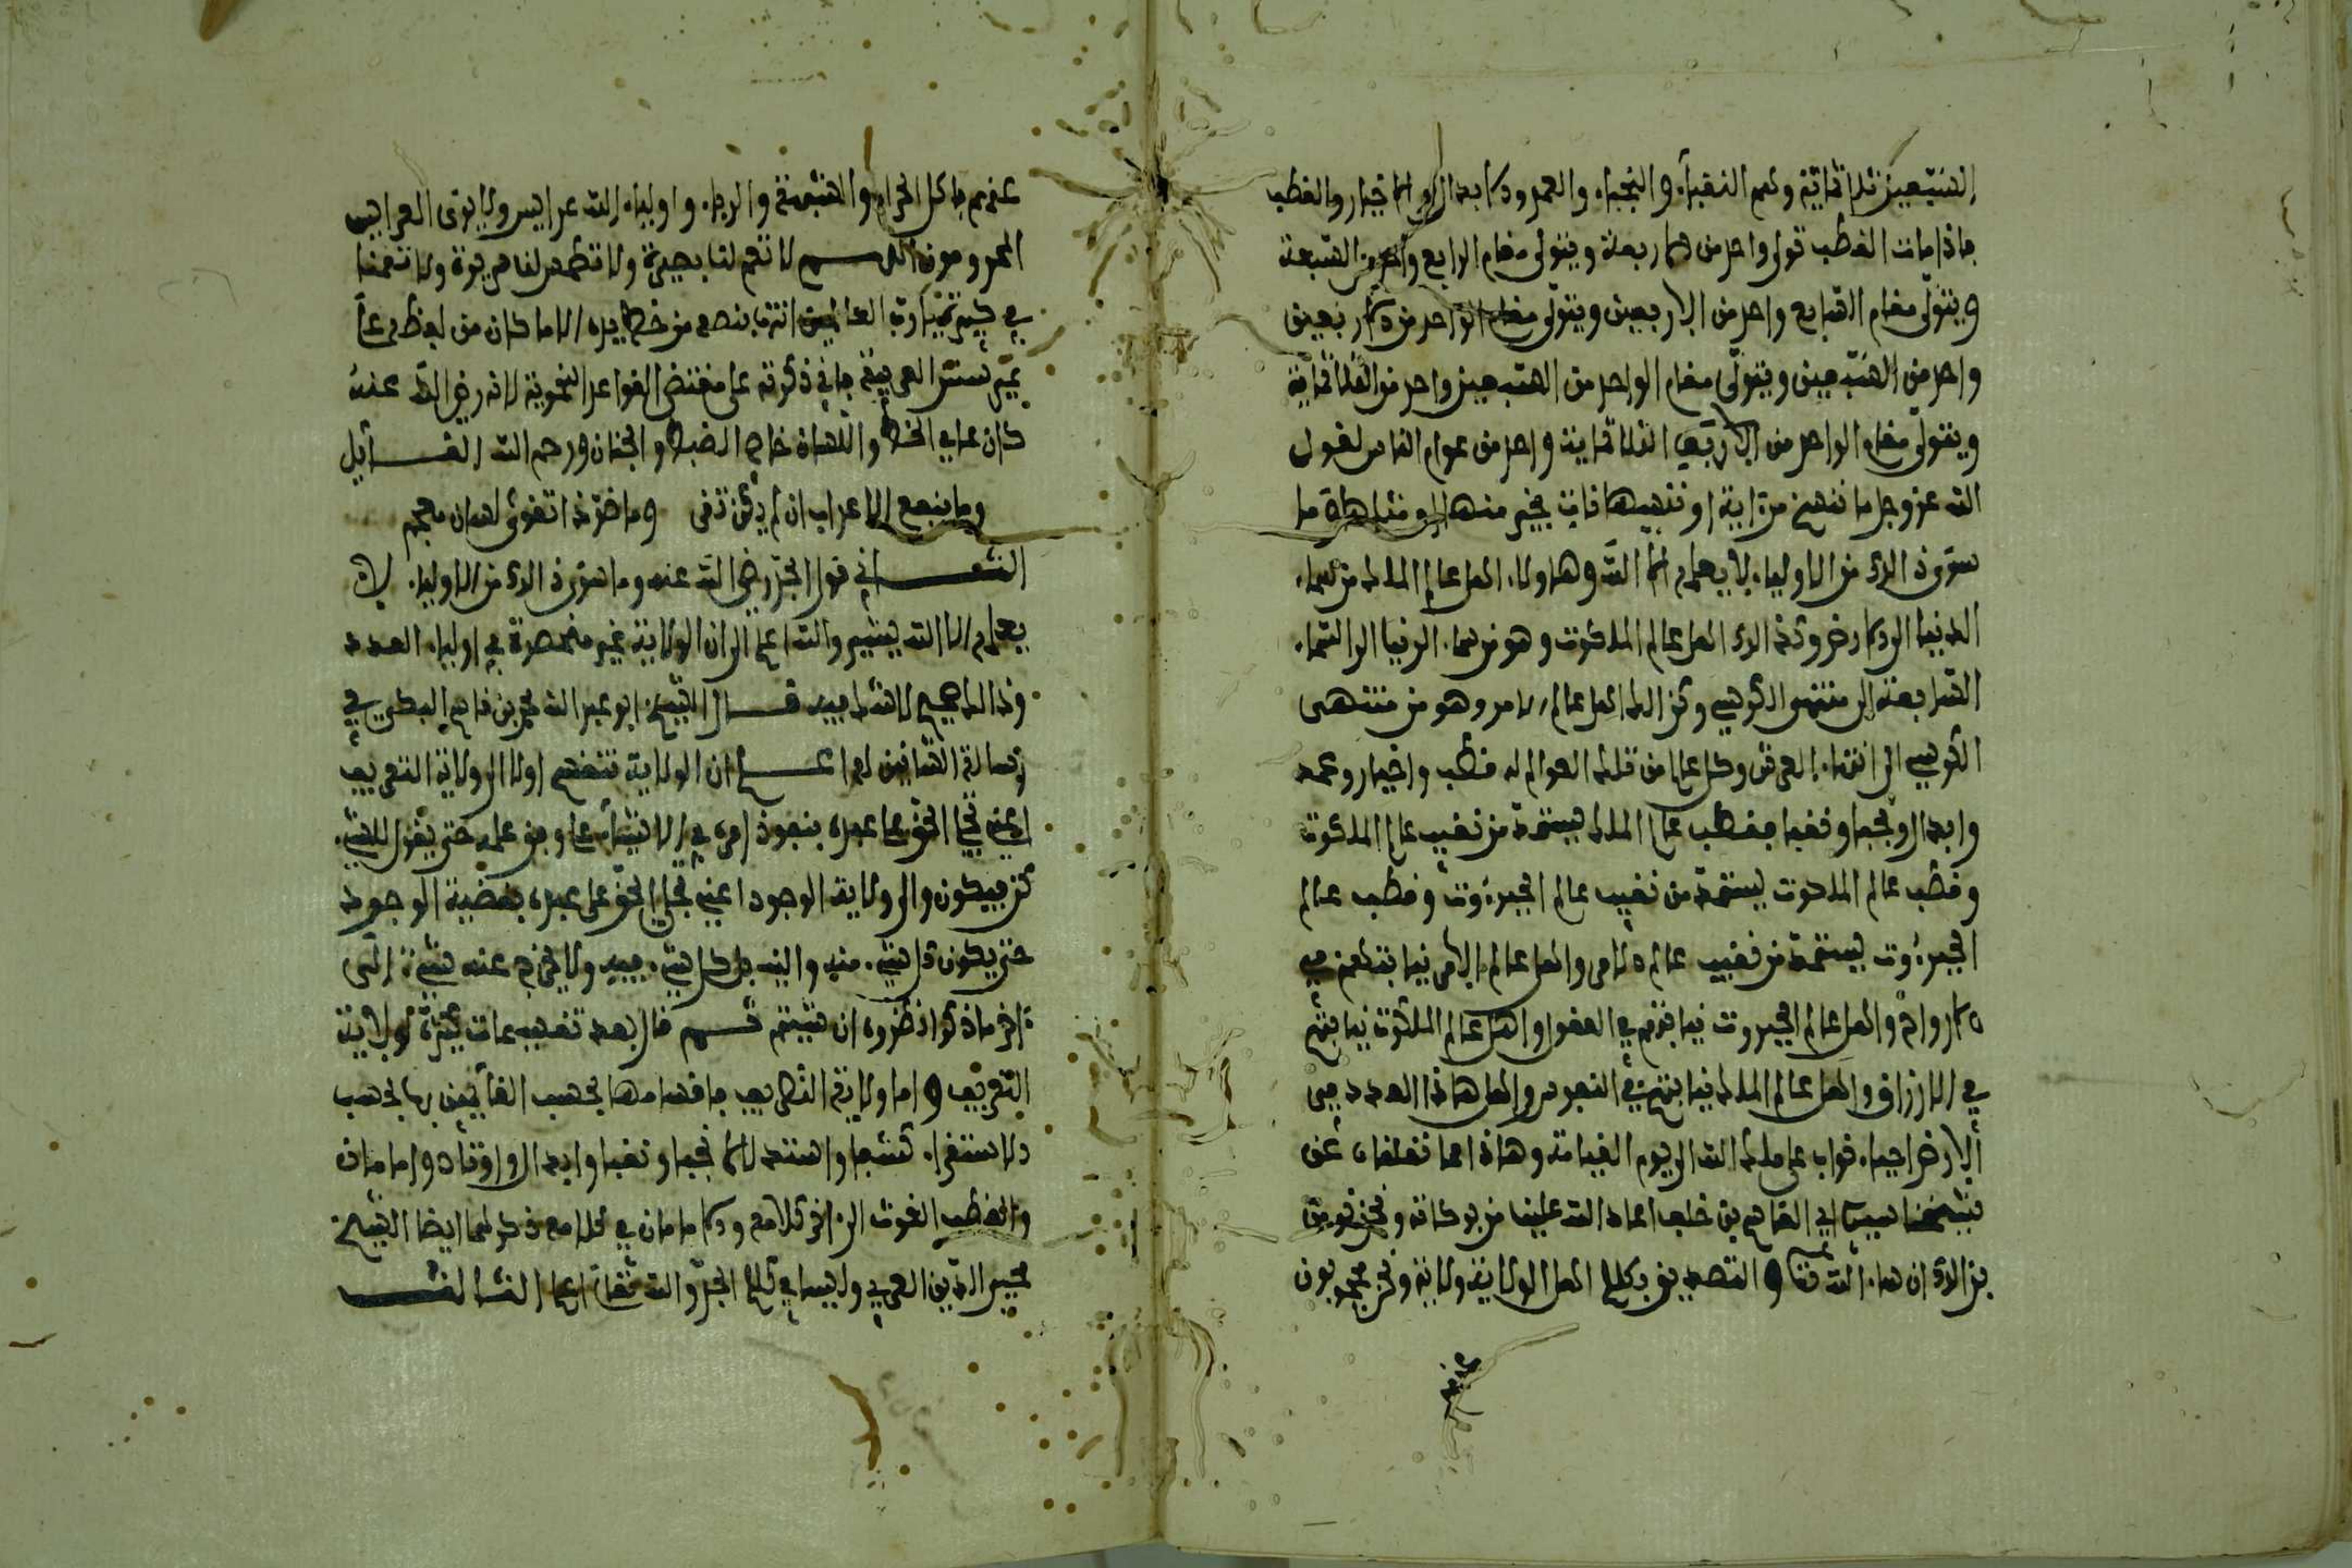 السبعين ثلاثماية وهم النقباء والنجباء والعمد والابدال والاخيار والقطب
فاذا مات القطب تولى واحد من الاربعة ويتولى مقام الرابع واحد من السبعة
ويتولى مقام السابع واحد من الاربعين ويتولى مقام الواحد من الاربعين
واحد من السبعين ويتولى مقام الواحد من السبعين واحد من الثلاثماية
ويتولى مقام الواحد من الثلاثماية واحد من عوام الناس لقول
الله عز وجل ما ننسخ من اية او ننسها نات بخير منها او مثلها ما
سوى ذالك من الاولياء لا يعلمه الا الله وهاولاء اهل عالم الملك من سماء
الدنيا الى الارض وكذالك اهل عالم الملكوت وهو من سماء الدنيا الى السماء
السابعة الى منتهى الكرسي وكذالك اهل عالم الامر وهو من منتهى
الكرسي الى انتهاء العرش وكل عالم من تلك العوالم له قطب واخيار وعمد
وابدال ونجبا ونقبا فقطب عالم الملك يستمد من نقيب عالم الملكوت
وقطب عالم الملكوت يستمد من نقيب عالم الجبروت وقطب عالم
الجبروت يستمد من نقيب عالم الامر واهل عالم الامر فيما يتطعم في
الارواح واهل عالم الجبروت فيما يتم في العقول واهل عالم الملكوت فيما يتم
في الارزاق واهل عالم الملك فيما يتم في النفوس واهل هاذا العدد في
الارض احياء نواب على ملك الله الى يوم القيامة وهاذا مما تلقفناه عن
شيخنا سيدي ابي القاسم بن خلف اعاد الله علينا من بركاته ونحن نومن
بذالك ان شاء الله تعالى والتصديق بكلام اهل الولاية ولاية ونحن محجوبون
عنهم باكل الحرام والشبهة والرياء واولياء الله عرايس ولا يرى العرايس
المجرمون اللهم لا تعم لنا بصيرة ولا تطمس لنا سريرة ولا تحمنا
في حيرة يارب العالمين انتهى بنصه من خط يده الا ما كان من لفظ على
غير سنن العربية فاني ذكرته على مقتضى القواعد النحوية لانه رضي الله عنه
كان عامي الخط واللسان خاص الضبط والجنان ورحم الله القائل
وما ينفع الاعراب ان لم يكن تقى وما ضر ذا تقوى لسان معجم
الثاني قول الجد رضي الله عنه وما سوى ذالك من الاولياء لا
يعلمه الا الله يشير والله اعلم الى ان الولاية غير منحصرة في اولياء العدد
وذالك صحيح لا شك فيه قال الشيخ ابو عبد الله محمد بن قاسم البكري في
رسالة السايس اعلم ان الولاية تنقسم اولا الى ولاية التعريف
اعني تجلي الحق على عبده بنفوذ امره في الاشياء على وفق علمه حتى يقول للشيء
كن فيكون والى ولاية الوجود اعني تجلي الحق على عبده بقضية الوجود
حتى يكون كل شيء منه واليه بل كل شيء فيه ولا يخرج عنه شيء الى
اخر ما ذكر انظره ان شيتم ثم قال بعد تقسيمات كثيرة لولاية
التعريف واما ولاية التصريف فاقسامها بحسب القايمين بها بحسب
الاستقراء كشفا واستدلالا نجبا ونقبا وابدال واوتاد وامامان
والقطب الغوث الى اخر كلامه والامامان في كلامه ذكرهما ايضا الشيخ
محيي الدين العربي وليسا في كلام الجد والله تعالى اعلم الثالث